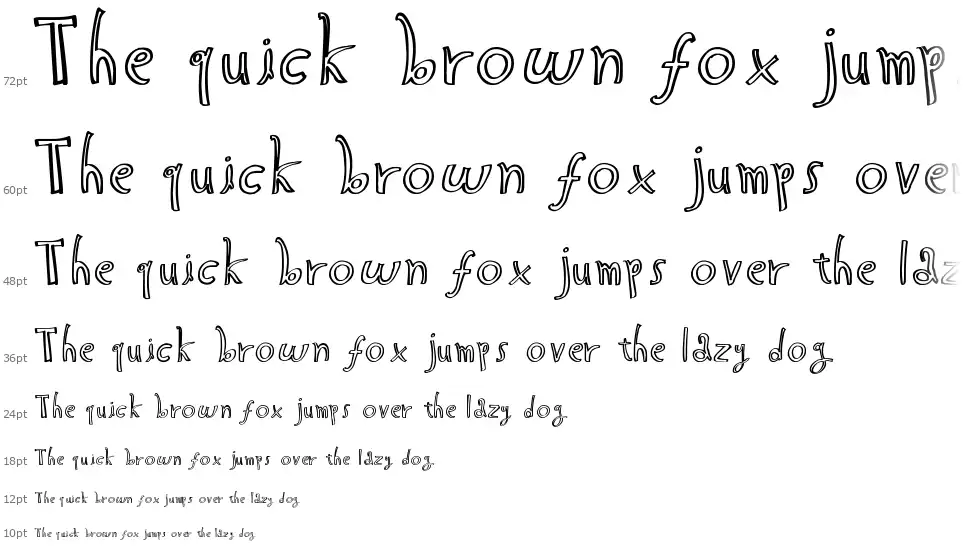 72pt The quick brown fox jump
60pt The quick brown fox jumps over
48pt The quick brown fox jumps over the laz
36pt The quick brown fox jumps over the lazy dog
24pt The quick brown fox jumps over the lazy dog
18pt The quick brown fox jumps over the lazy dog
12pt The quick brown fox jumps over the lazy dog
10pt The quick brown fox jumps over the lazy dog